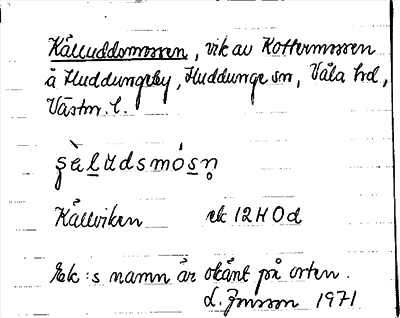 Källuddsmossen, vik av Kottermossen
å Huddungeby, Huddunge sn, Våla hd,
Västm. l.
ʂàludsmósn̥
Källviken ek 12H0d
Ek:s namn är okänt på orten.
L. Jonsson 1971